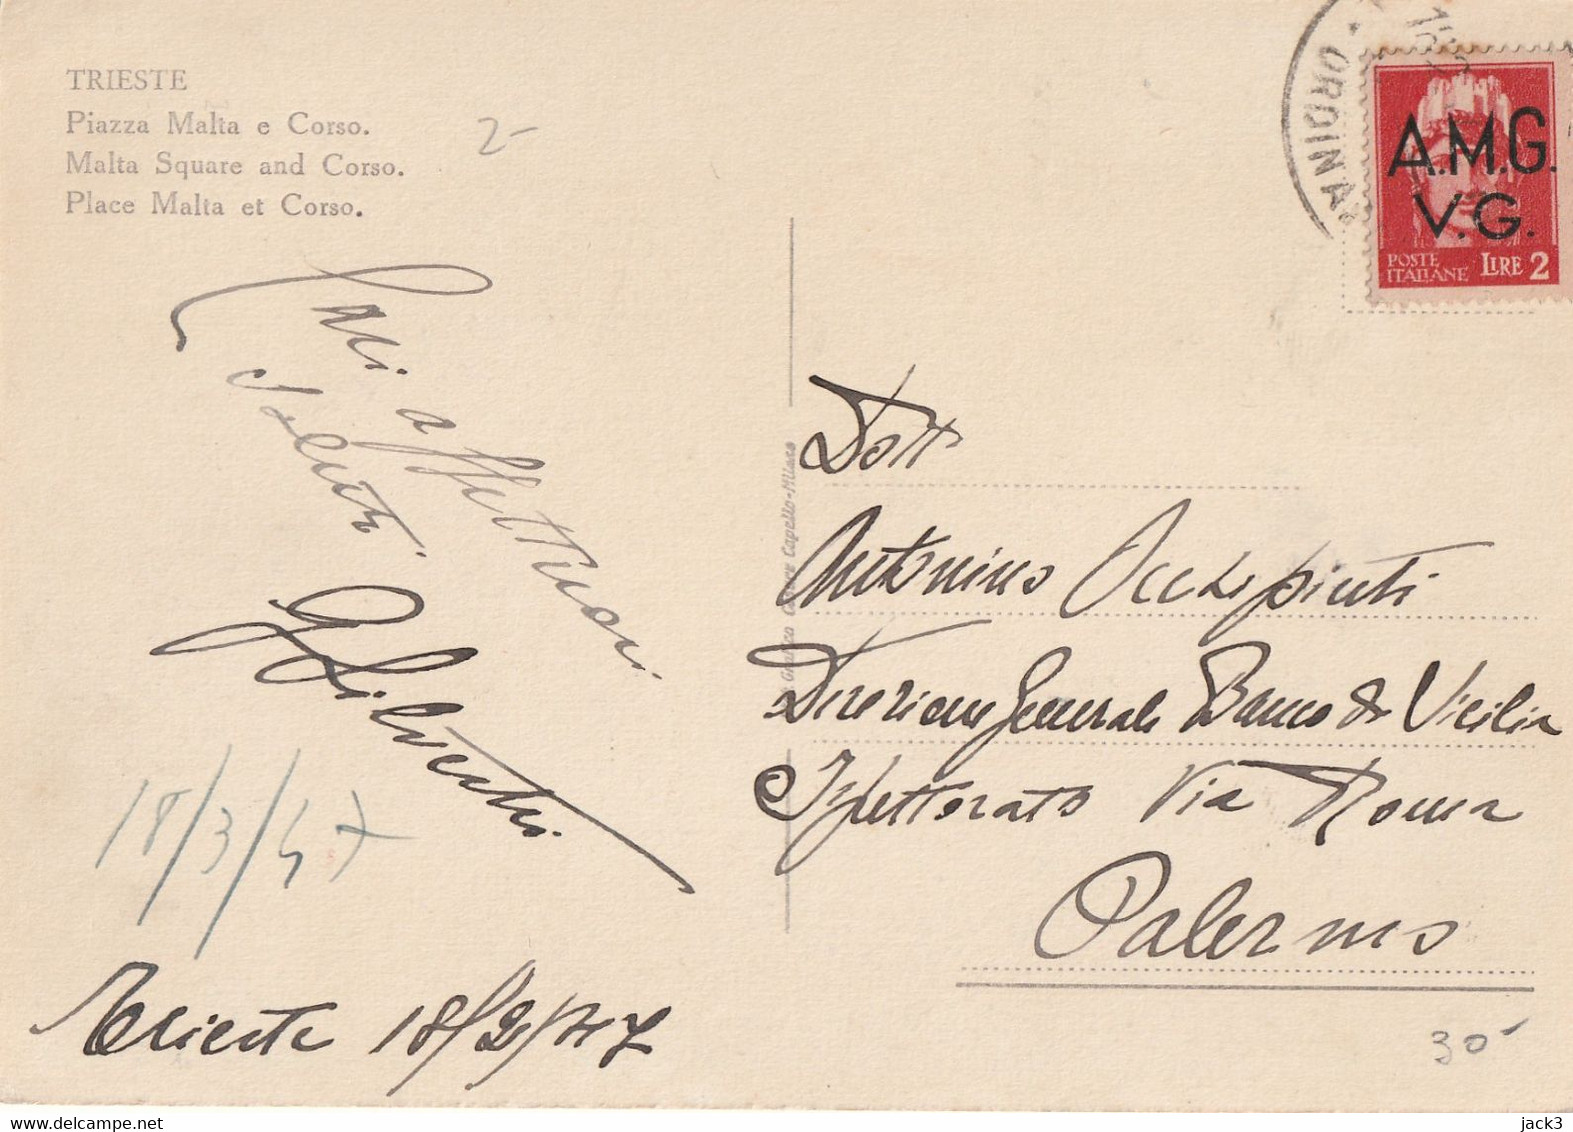 TRIESTE
Piazza Malta e Corso.
Malta Square and Corso.
Place Malta et Corso.
2-
Cari affettuosi
saluti
18/3/47
Trieste 18/2/47
ORDINA
A.M.G.
V.G.
POSTE
ITALIANE LIRE 2
Cesare Capello-Milano
Dott
Antonino Occhipinti
Direzione Generale Banco di Sicilia
Ispettorato Via Roma
Palermo
30
delcampe.net
jack3